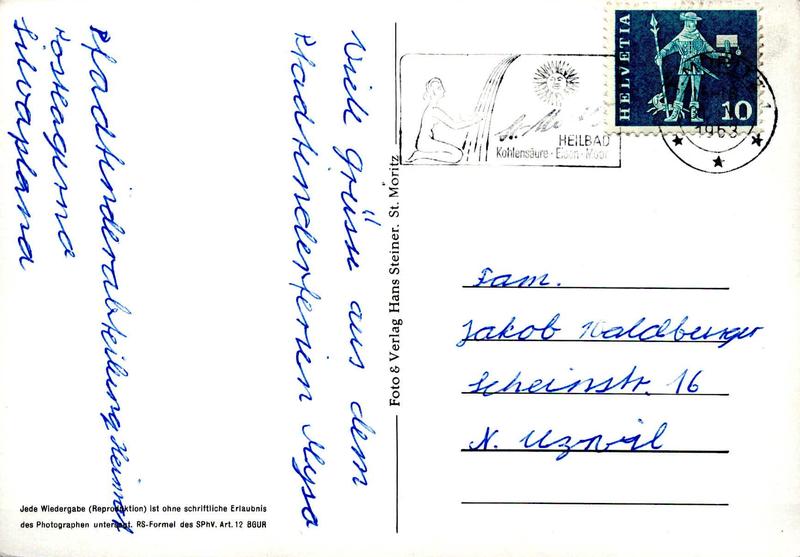 Viele Grüsse aus dem
Pfadfinderferien
Pfadfinderabteilung Heimat
Silvaplana
Jede Wiedergabe (Reproduktion) ist ohne schriftliche Erlaubnis
des Photographen untersagt. RS-Formel des SPhV. Art. 12 BGUR
Foto & Verlag Hans Steiner. St. Moritz
HEILBAD
Kohlensäure - Eisen - Moor
1963
HELVETIA
10
Fam.
Jakob Waldburger
Scheinstr. 16
N. Uzwil